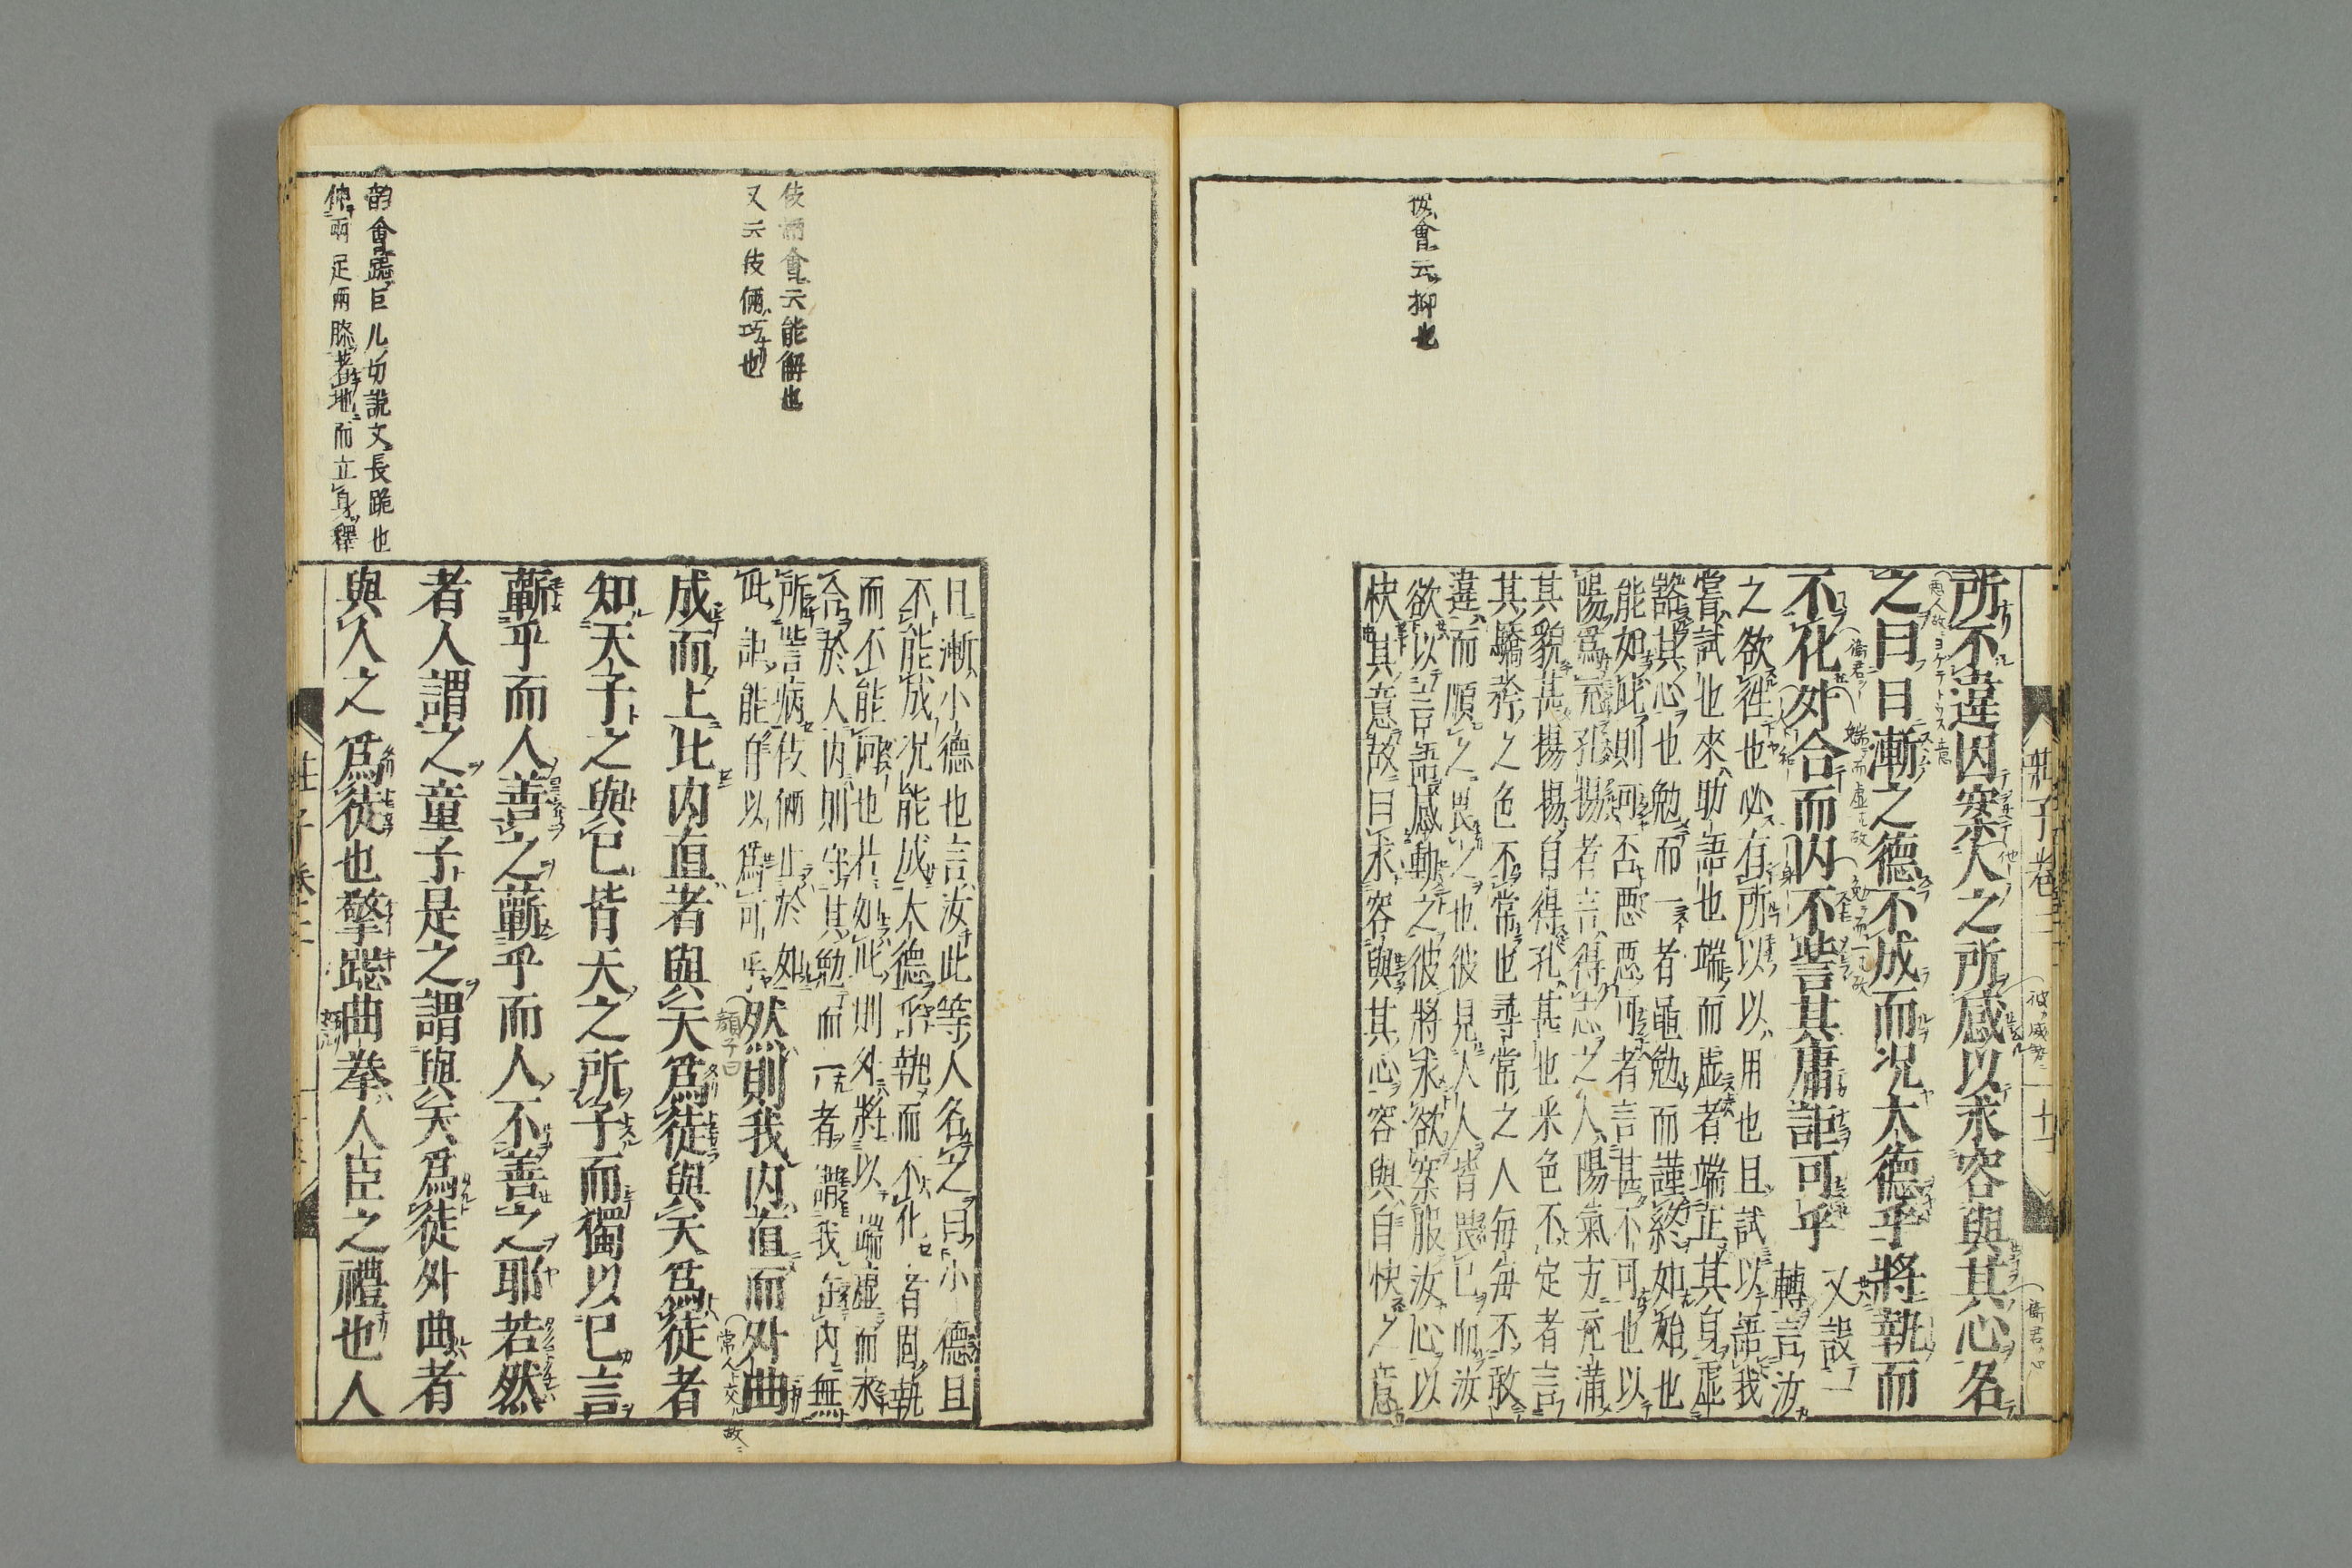 所不違因案人之所感以求容與其心名
之曰日漸之德不成而况大德乎將執而
不化外合而内不訾其庸詎可乎 又設一轉言汝
之欲徃也必有所以以用也且試以語我
嘗試也來助語也端而虚者端正其身虚
豁其心也勉而一者黽勉而謹終如始也
能如此則可否惡惡可者言甚不可也以
陽爲充孔揚者言得志之人陽氣方充滿
其貌甚揚揚自得孔甚也采色不定者言
其驕矜之色不常也尋常之人毎毎不敢
違而順之畏之也彼見人人皆畏已而汝
欲以言語感動之彼將求欲案服汝心以
快其意故曰求容與其心容與自快之意
㧖會云抑也
莊子卷二
日漸小德也言汝此等人名之曰小德且
不能成况能成大德乎執而不化者固執
而不能回也若如此則外將以端虚而求
合於人内則守其勉而一者譏我在内無
所訾病伎倆止於如
此詎能自以爲可乎然則我内直而外曲
成而上比内直者與天爲徒與天爲徒者
知天子之與已皆天之所子而獨以已言
蘄乎而人善之蘄乎而人不善之耶若然
者人謂之童子是之謂與天爲徒外曲者
與人之爲徒也擎跽曲拳人臣之禮也人
伎倆會云能解也
又云伎倆巧也
韵會跽巨几切説文長跪也
伸兩足兩膝著地而立身釋
莊子卷二